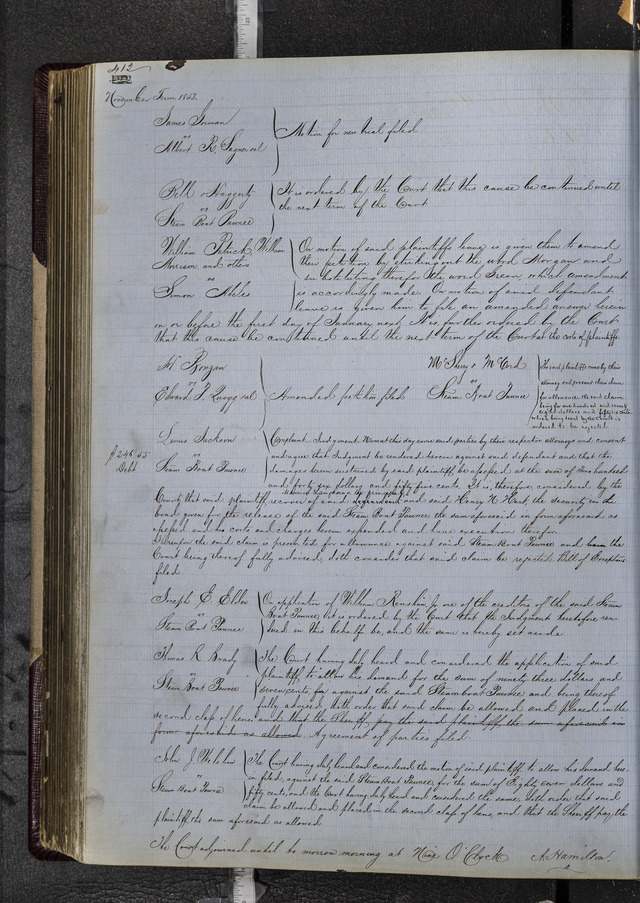 412
November Term 1853.
James Inman
vs
Albert R.
Motion for new trial filed
Bell & Haggerty
vs
Steam Boat Pawnee
It is ordered by the Court that this cause be continued until
the next term of the Court
William Patrick, William
Morrison and others
vs
Simon Abeles
On motion of said plaintiffs leave is given them to amend
their petition by striking out the word Morgan and
substituting therefor the word Green, which amendment
is accordingly made. On motion of said defendant
leave is given him to file an amended answer herein
on or before the first day of January next. It is further ordered by the Court
that this cause be continued until the next term of the Court at the costs of plaintiffs
vs
Amended petition filed
McCord
vs
Steam Boat Pawnee
The said plaintiffs come by their
attorney and present their claim
for allowance the said claim
being for one hundred and
eight dollars and
which being heard by the Court is
ordered to be rejected
$246,55
Debt
Jackson
vs
Steam Boat Pawnee
Complaint. Judgment. Now at this day come said parties by their respective attorneys and consent
and agree that Judgment be rendered herein against said defendant and that the
damages herein sustained by said plaintiff be assessed at the sum of Two hundred
and forty six dollars and fifty five cents. It is, therefore, considered by the
Steam Boat Pawnee as principal
Court that said plaintiff recover of said defendant and said Henry N. Hart, the security in the
bond given for the release of the said Steam Boat Pawnee the sum aforesaid in form aforesaid as
assessed and his costs and charges herein expended and have execution therefor
Whereupon the said claim is presented for allowance against said Steam Boat Pawnee and the
Court being thereof fully advised, doth consider that said claim be rejected. Bill of Exceptions
filed.
Joseph E. Elder
vs
Steam Boat Pawnee
On application of William Renshaw Jr one of the creditors of the said Steam
Boat Pawnee, it is ordered by the Court that the Judgment heretofore ren-
dered in this behalf be, and the same is hereby set aside
Thomas R. Brady
vs
Steam Boat Pawnee
The Court having duly heard and considered the application of said
plaintiff to allow his demands for the sum of ninety three dollars and
seven cents for against the said Steamboat Pawnee and being thereof
fully advised, doth order that said claim be allowed and placed in the
second class of liens, and that the Sheriff pay the said plaintiff the sum aforesaid in
form aforesaid as allowed. Agreement of parties filed.
John J.
vs
Steam Boat Pawnee
The Court having duly heard and considered the motion of said plaintiff, to allow his demand here-
in filed, against the said Steam Boat Pawnee, for the sum of Eighty seven dollars and
fifty cents, and the Court having duly heard and considered the same, doth order that said
claim be allowed and placed in the second class of liens, and that the Sheriff pay the
plaintiff the sum aforesaid as allowed
The Court adjourned until to morrow morning at Nine O'Clock
A. Hamilton